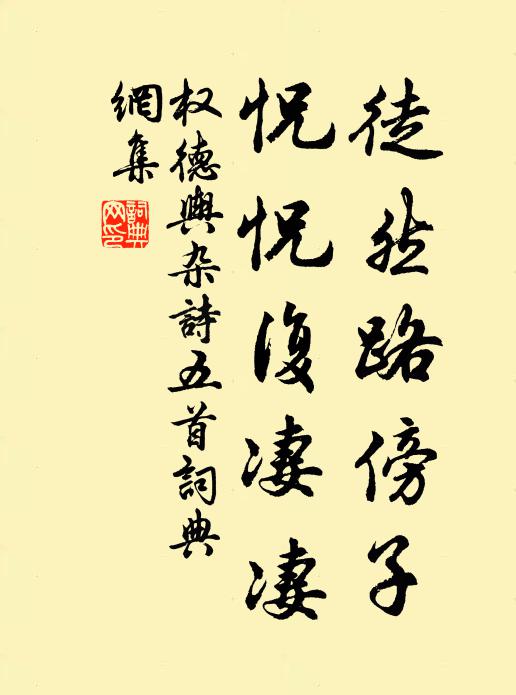 徒然路傍子
怳怳復凄凄
权德輿杂詩五首詞典
網集
詞典
网印